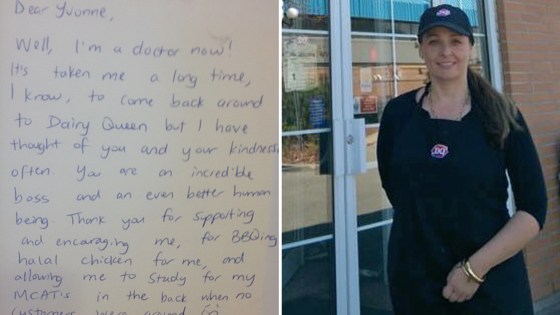 Dear Yvonne,
Well, I'm a doctor now!
It's taken me a long time,
I know, to come back around
to Dairy Queen but I have
thought of you and your kindness
often. You are an incredible
boss and an even better human
being. Thank you for supporting
and encouraging me, for BBQing
halal chicken for me, and
allowing me to study for my
MCAT's in the back when no
customers were around
DQ
DQ